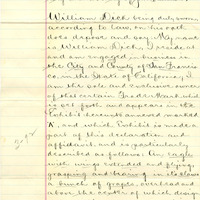 William Rich being duly sworn
according to law, on his oath
does depose and say: My name
is William Rich; I reside at
and am engaged in business in
the City and County of San Francis
co, in the State of California; I
am the sole and exclusive owner
of the certain Trade-Mark which
is set forth and appears in the
Exhibit hereunto annexed marked
"A", and which Exhibit is made a
part of this declaration and
affidavit, and is particularly
described as follows: An eagle
with wings extended and flying;
grasping and bearing in its claws
a bunch of grapes, over head and
above the center of which design